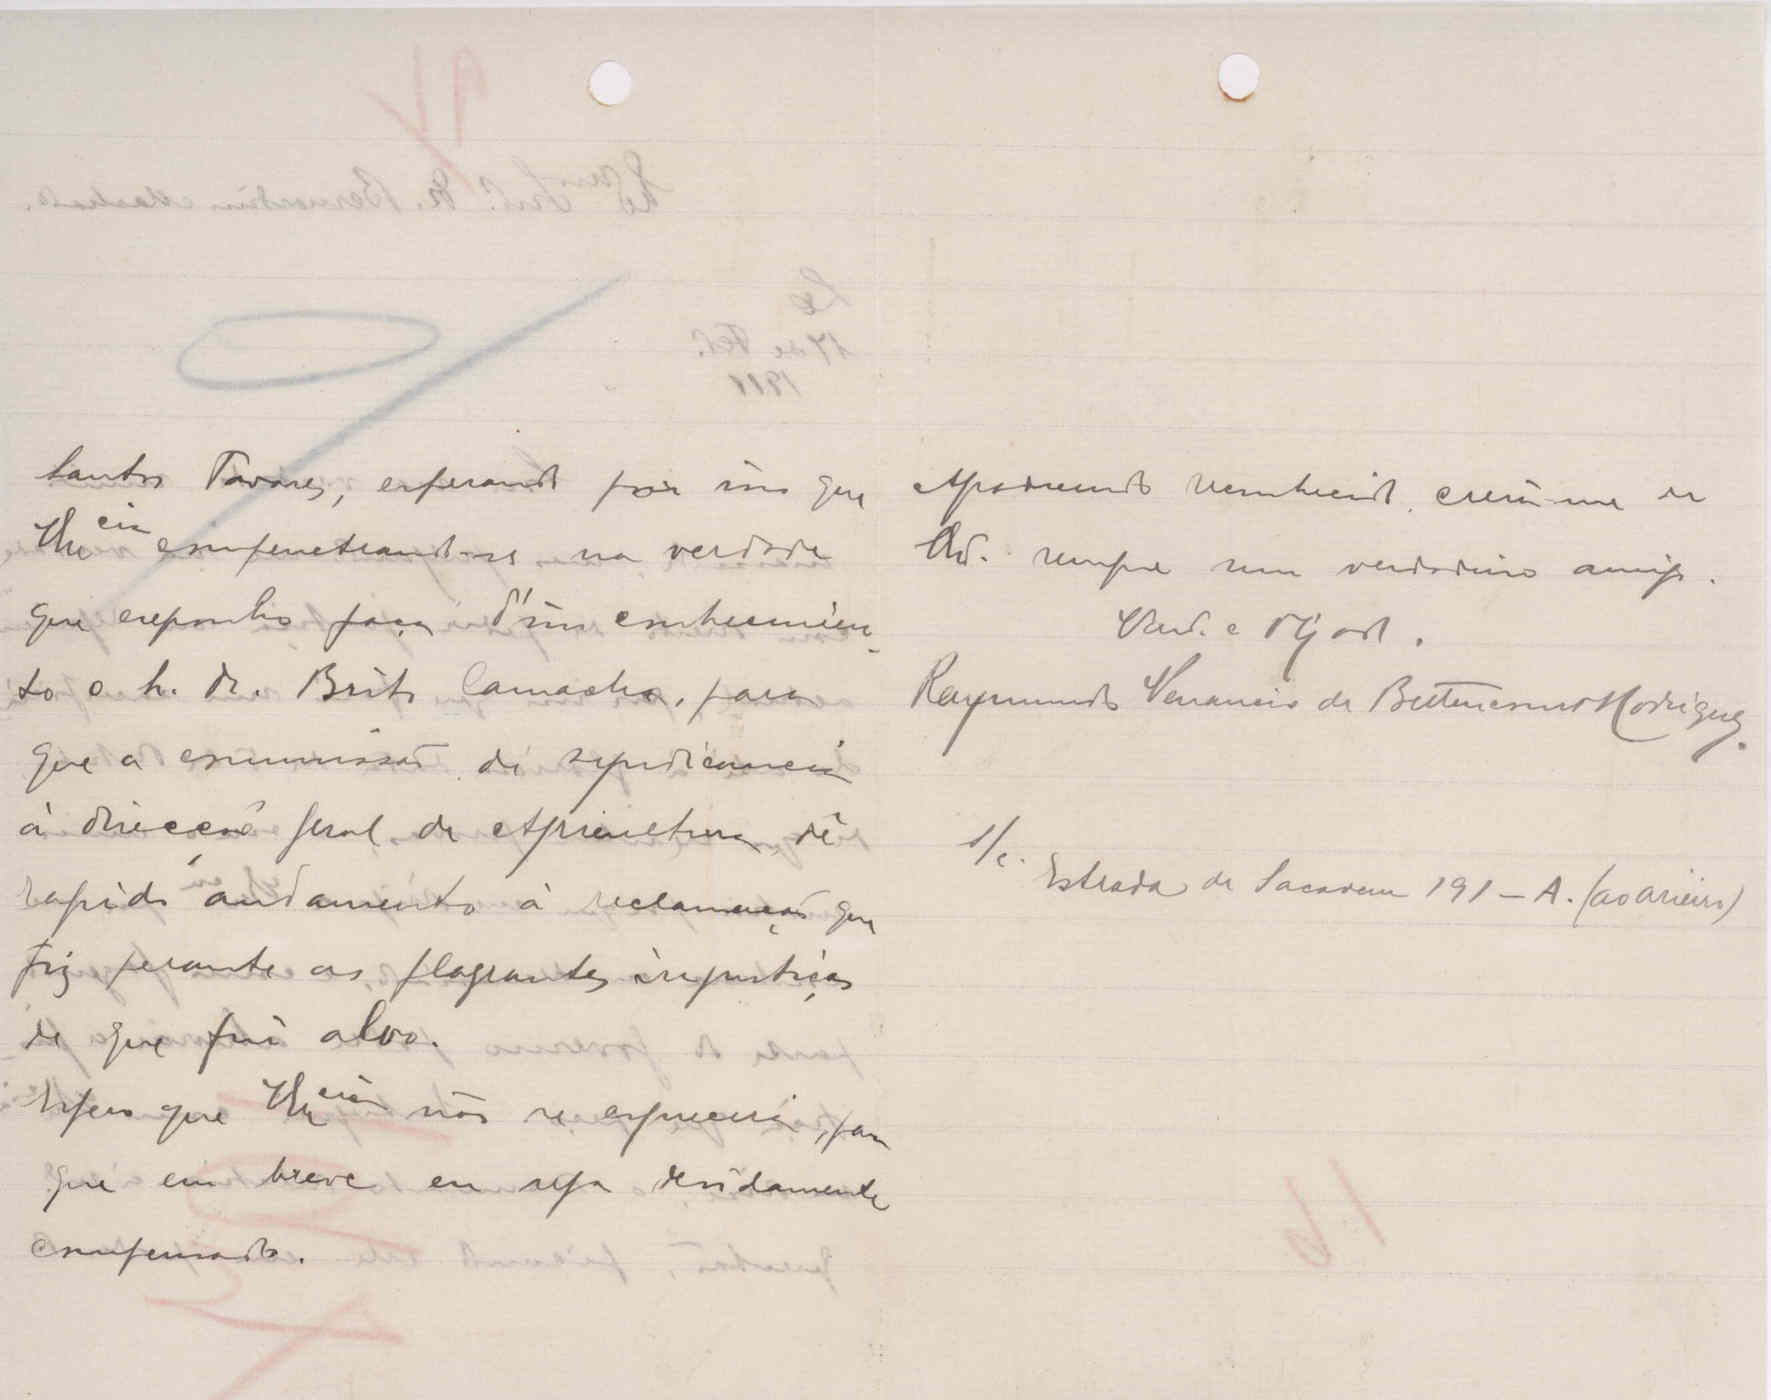 Santos Tavares, esperando por isso que
V. Ex.cia compenetrando-se na verdade
que exponho faça d'isso conhecimen-
to o S. Dr. Brito Camacho, para
que a commissão de syndicancia
à direcção geral de Agricultura dê
rapido andamento à reclamação que
fiz perante as flagrantes injustiças
de que fui alvo.
Espero que V. Ex.cia não se esquecerá, para
que em breve eu seja devidamente
compensado.
Agradecendo reconhecido, creia-me de
V. sempre um verdadeiro amigo.
Vend. e Obgado.
Raymundo Venancio de Bettencourt Rodrigues.
S/c. Estrada de Sacavem 191-A. (ao Arieiro)